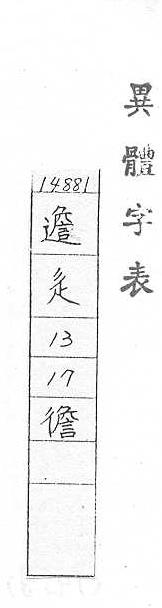 異體字表
14881
辵
13
17